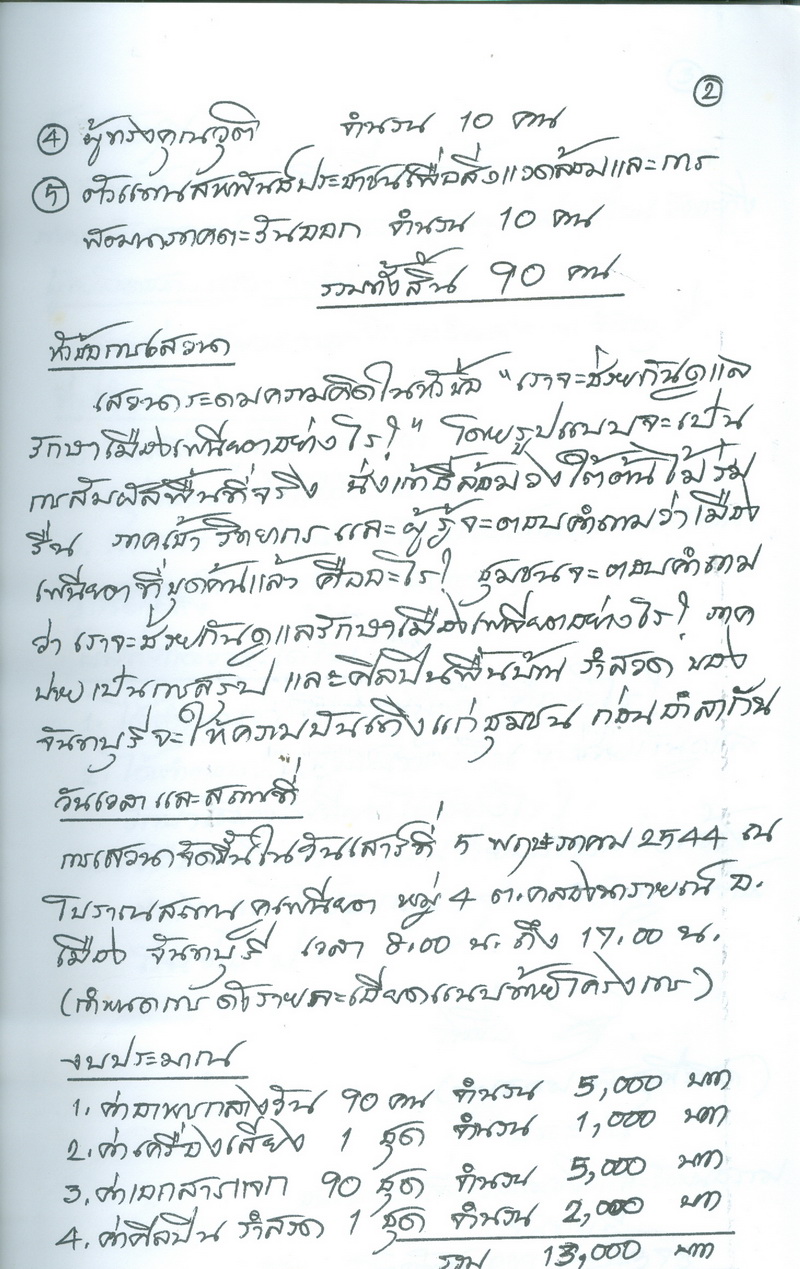 ②
④ ผู้ทรงคุณวุฒิ จำนวน 10 คน
⑤ ตัวแทนสัมพันธ์ประชาชนเพื่อสิ่งแวดล้อมและการ
พัฒนาภาคตะวันออก จำนวน 10 คน
รวมทั้งสิ้น 90 คน
หัวข้อการเสวนา
เสวนาระดมความคิดในหัวข้อ "เราจะช่วยกันดูแล
รักษาเมืองเพนียตอย่างไร?" โดยรูปแบบจะเป็น
การสัมผัสพื้นที่จริง นั่งเก้าอี้ล้อมวงใต้ต้นไม้ร่ม
รื่น ภาคเช้า วิทยากร และผู้รู้จะตอบคำถามว่าเมือง
เพนียตที่ขุดค้นแล้ว คืออะไร? ชุมชนจะตอบคำถาม
ว่า เราจะช่วยกันดูแลรักษาเมืองเพนียตอย่างไร? ภาค
บ่าย เป็นการสรุป และศิลปินพื้นบ้าน รำสวด ของ
จันทบุรีจะให้ความบันเทิงแก่ชุมชน ก่อนอำลากัน
วันเวลา และสถานที่
การเสวนาจัดขึ้นในวันเสาร์ที่ 5 พฤษภาคม 2544 ณ
โบราณสถาน เพนียต หมู่ 4 ต.คลองนารายณ์ อ.
เมือง จันทบุรี เวลา 8.00 น. ถึง 17.00 น.
(กำหนดการ ดังรายละเอียดแนบท้ายโครงการ)
งบประมาณ
1. ค่าอาหารกลางวัน 90 คน จำนวน 5,000 บาท
2. ค่าเครื่องเสียง 1 ชุด จำนวน 1,000 บาท
3. ค่าเอกสารแจก 90 ชุด จำนวน 5,000 บาท
4. ค่าศิลปิน รำสวด 1 ชุด จำนวน 2,000 บาท
รวม 13,000 บาท